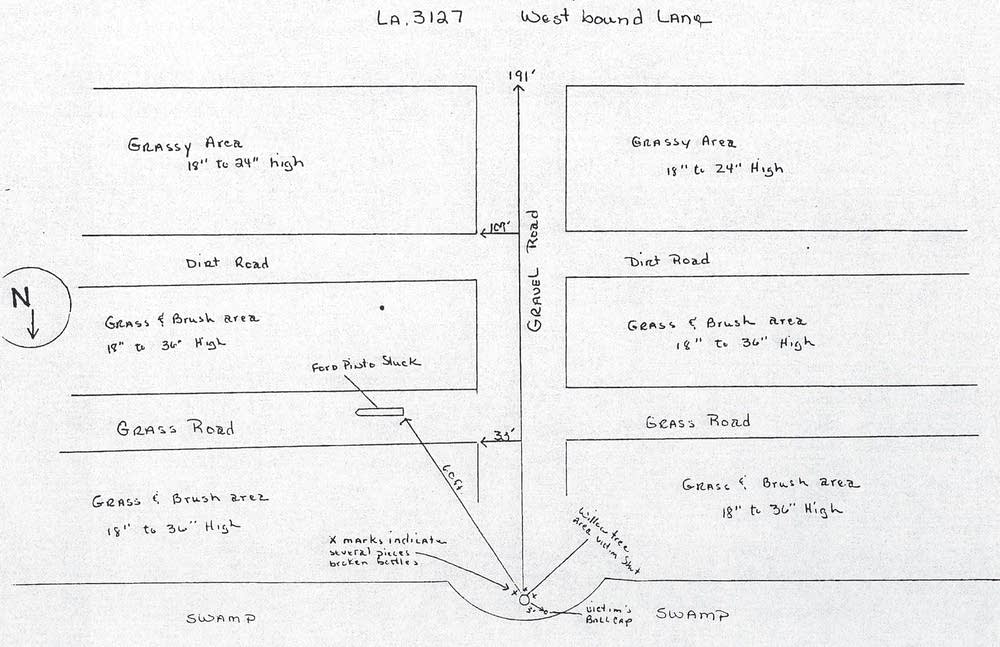 LA. 3127 West bound LANE
191'
GRASSY AREA
18" to 24" high
GRASSY AREA
18" to 24" High
109'
GRAVEL Road
Dirt Road
Dirt Road
N
GRASS & Brush area
18" to 36" High
GRASS & Brush area
18" to 36" High
Ford Pinto Stuck
GRASS Road
GRASS Road
33'
60ft
GRASS & Brush area
18" to 36" High
GRASS & Brush area
18" to 36" High
Willow tree
Area victim Shot
X marks indicate
several pieces
broken bottles
x
x
x
victim's
BALL CAP
SWAMP
SWAMP